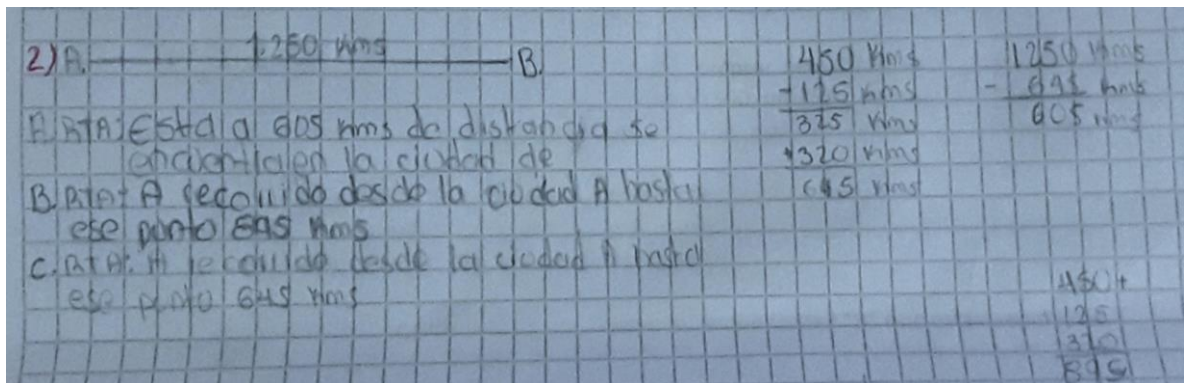 2) A. 1.250 kms B.
A) RTA: Está a dos kms de distancia se
en la ciudad de
B) RTA: A recorrido desde la ciudad A hasta
ese punto 895 kms
C. RTA: A recorrido desde la ciudad A hasta
ese punto 645 kms
450 kms
-125 kms
325 kms
+320 kms
645 kms
1250 kms
- 645 kms
605 kms
450+
125
320
895